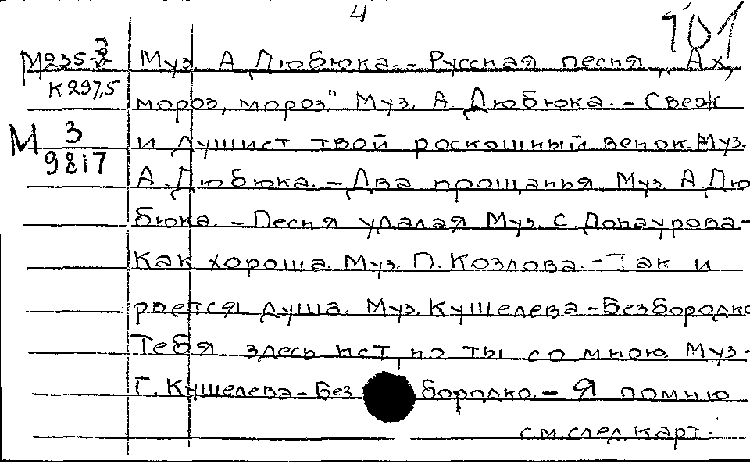 4
101
М235-3 Муз. А. Дюбюка. – Русская песня „Ах,
К2975 мороз, мороз". Муз. А. Дюбюка. – Свеж
М 3 и душист твой роскошный венок. Муз.
9817 А. Дюбюка. – Два прощанья. Муз. А. Дю
бюка. – Песня удалая. Муз. С. Донаурова –
Как хороша. Муз. П. Козлова. – Так и
рвется душа. Муз. Кушелева-Безбородко
Тебя здесь нет, но ты со мною. Муз.
Г. Кушелева-Без бородко. – Я помню
см. след. карт.